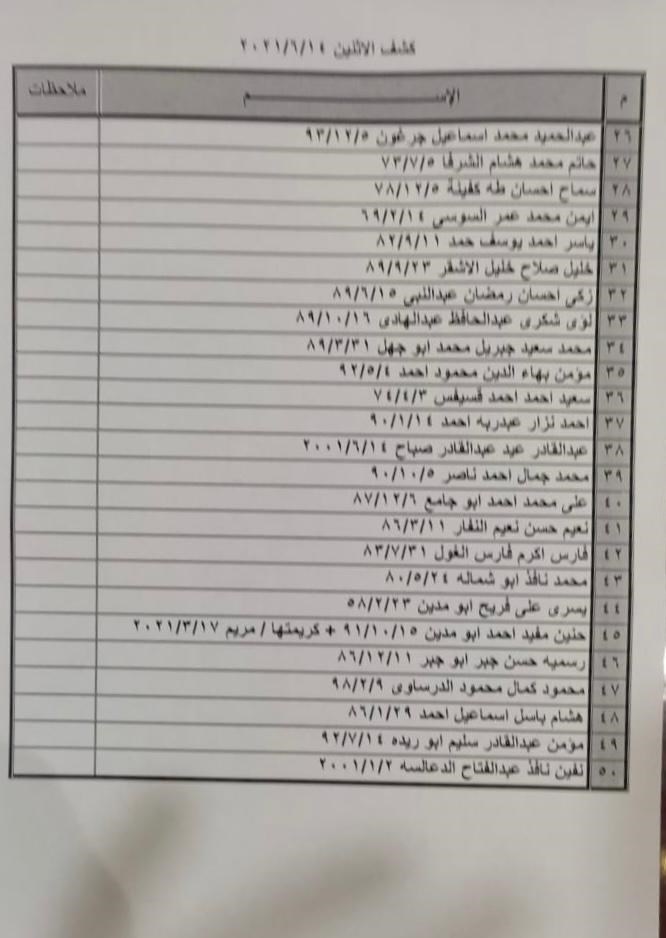 كشف الاثنين ٢٠٢١/٦/١٤
م الإســـــــم ملاحظات
٢٦ عبدالحميد محمد اسماعيل جرغون ٩٣/١٢/٥
٢٧ حاتم محمد هشام الشرفا ٧٣/٧/٥
٢٨ سماح احسان طه كفينة ٧٨/١٢/٥
٢٩ ايمن محمد عمر السوسي ٦٩/٢/١٤
٣٠ ياسر احمد يوسف حمد ٨٢/٩/١١
٣١ خليل صلاح خليل الاشقر ٨٩/٩/٢٣
٣٢ زكى احسان رمضان عبدالنبي ٨٩/٦/١٥
٣٣ لؤى شكرى عبدالحافظ عبدالهادى ٨٩/١٠/١٦
٣٤ محمد سعيد جبريل محمد ابو جهل ٨٩/٣/٣١
٣٥ مؤمن بهاء الدين محمود احمد ٩٢/٥/٤
٣٦ سعيد احمد احمد قسيفس ٧٤/٤/٣
٣٧ احمد نزار عبدربه احمد ٩٠/١/١٤
٣٨ عبدالقادر عيد عبدالقادر صباح ٢٠٠١/٦/١٤
٣٩ محمد جمال احمد ناصر ٩٠/١٠/٥
٤٠ على محمد احمد ابو جامع ٨٧/١٢/٦
٤١ نعيم حسن نعيم النفار ٨٦/٣/١١
٤٢ فارس اكرم فارس الغول ٨٣/٧/٣١
٤٣ محمد نافذ ابو شماله ٨٠/٥/٢٤
٤٤ يسرى على فريح ابو مدين ٥٨/٢/٢٣
٤٥ حنين مفيد احمد ابو مدين ٩١/١٠/١٥ + كريمتها / مريم ٢٠٢١/٣/١٧
٤٦ رسميه حسن جبر ابو جبر ٨٦/١٢/١١
٤٧ محمود كمال محمود الدرساوى ٩٨/٢/٩
٤٨ هشام باسل اسماعيل احمد ٨٦/١/٢٩
٤٩ مؤمن عبدالقادر سليم ابو ريده ٩٢/٧/١٤
٥٠ نفين نافذ عبدالفتاح الدعالسه ٢٠٠١/١/٢